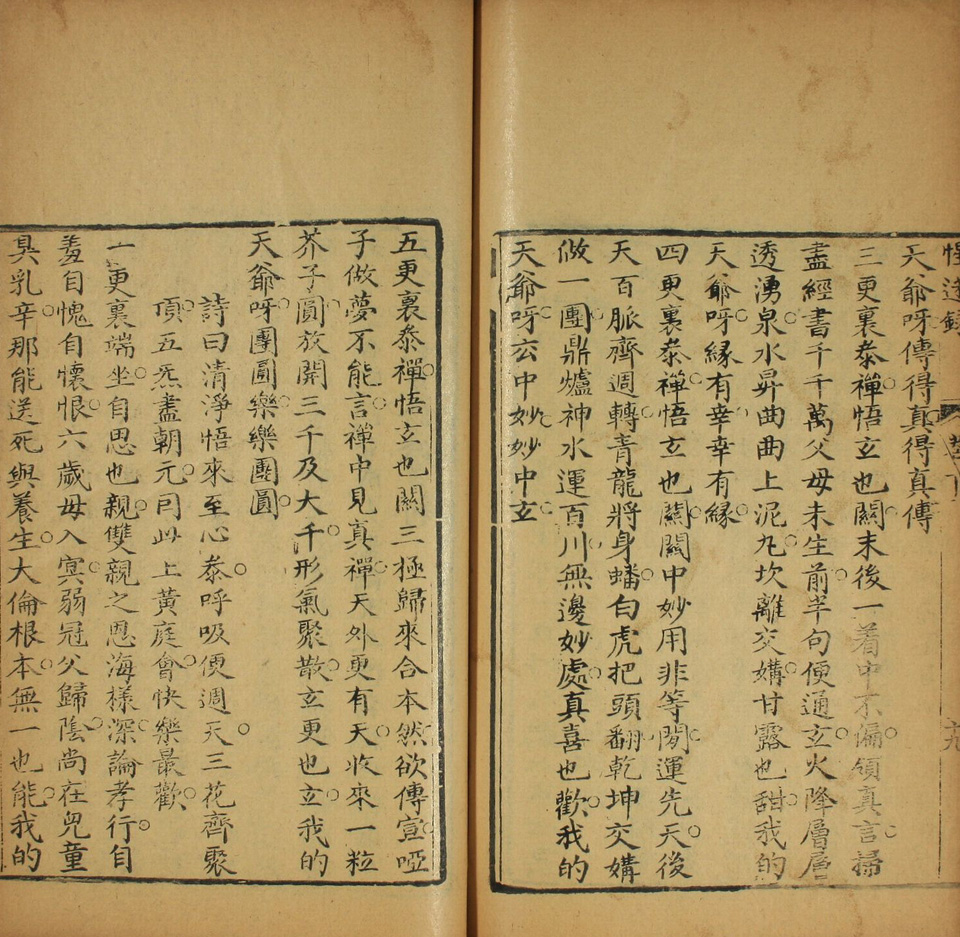 惺迷錄
天爺呀傳得真得真傳
三更裏叅禪悟玄也關末後一着中不偏領真言掃
盡經書千千萬父母未生前半句便通玄火降層層
透湧泉水昇曲曲上泥九坎離交媾甘露也甜我的
天爺呀緣有幸幸有緣
四更裏叅禪悟玄也關關中妙用非等閒運先天後
天百脈齊週轉青龍將身蟠白虎把頭翻乾坤交媾
做一團鼎爐神水運百川無邊妙處真喜也歡我的
天爺呀玄中妙妙中玄
五更裏叅禪悟玄也關三極歸來合本然欲傳宣啞
子做夢不能言禪中見真禪天外更有天收來一粒
芥子圓放開三千及大千形氣聚散玄更也玄我的
天爺呀團圓樂樂團圓
詩曰清淨悟來至心泰呼吸便週天三花齊聚
頂五炁盡朝元到此上黃庭會快樂最歡
一更裏端坐自思也親雙親之恩海樣深論孝行自
羞自愧自懷恨六歲母入冥弱冠父歸陰尚在兒童
具乳辛那能送死與養生大倫根本無一也能我的